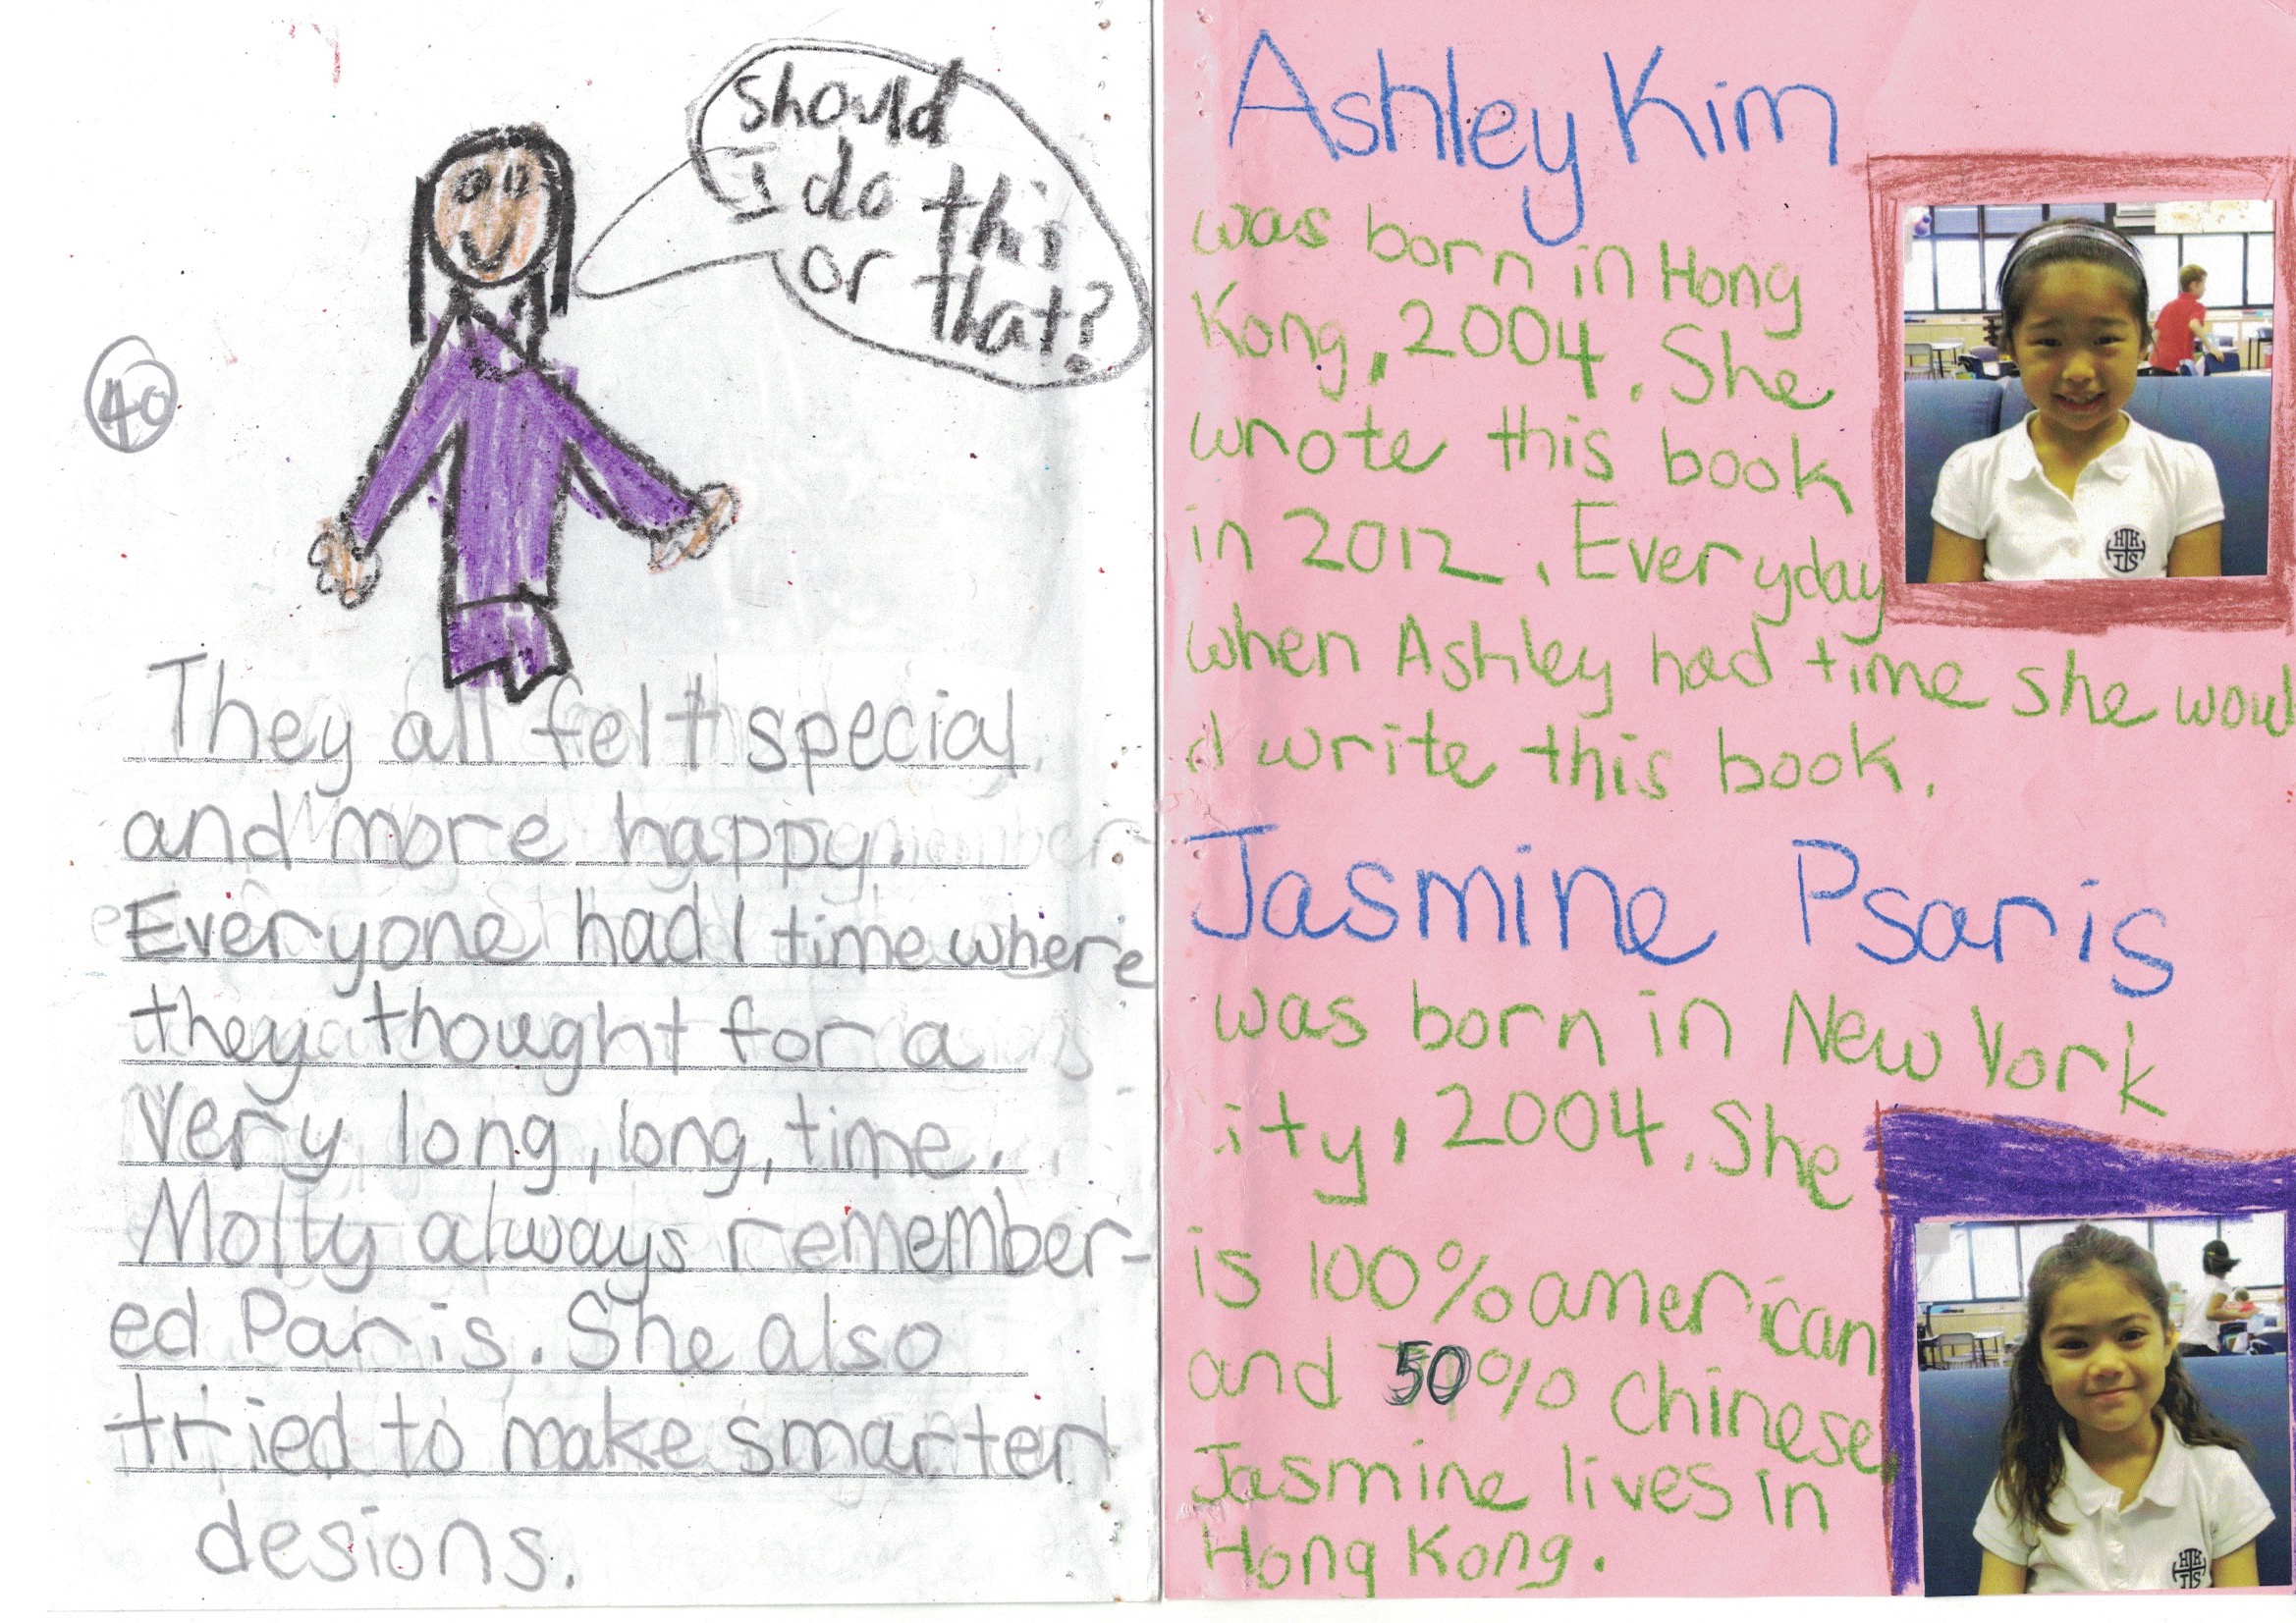 Should
I do this
or that?
40
They all felt special
and more happy.
Everyone had 1 time where
they thought for a
very long, long, time.
Molly always remember-
ed Paris. She also
tried to make smarter
desions.
Ashley Kim
was born in Hong
Kong, 2004. She
wrote this book
in 2012. Everyday
when Ashley had time she woul
d write this book.
Jasmine Psaris
was born in New York
ity, 2004. She
is 100% american
and 50% chinese,
Jasmine lives in
Hong Kong.
HK
IS
HK
IS